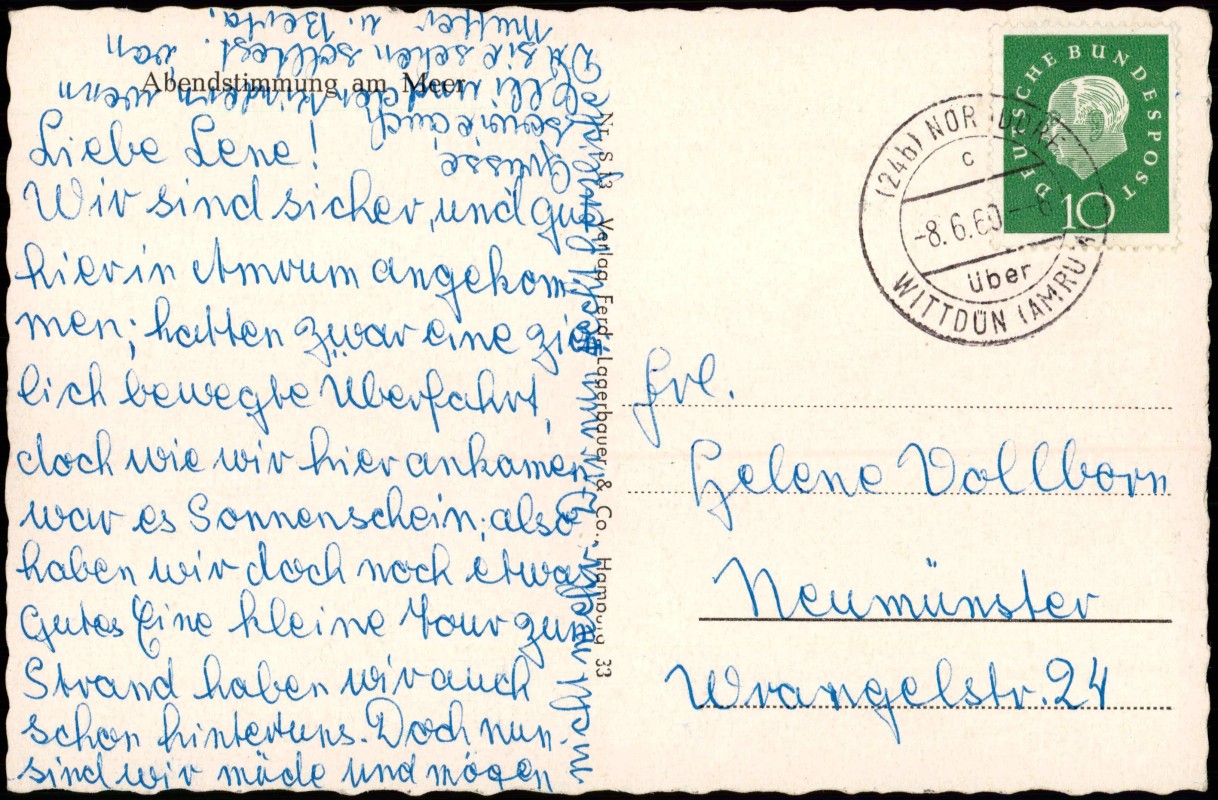 Abendstimmung am Meer
Liebe Lene!
Wir sind sicher, und gut
hier in Amrum angekom-
men; hatten zwar eine ziem
lich bewegte Überfahrt,
doch wie wir hier ankamen
war es Sonnenschein, also
haben wir doch noch etwas
Gutes Eine kleine Tour zum
Strand haben wir auch
schon hinter uns. Doch nun
sind wir müde und mögen
nicht mehr
Grüsse
sowie auch
Elli und der Kindern wenn
Du sie sehen solltest. von
Mutter u. Berta.
Nr. S 13 Verlag Ferd. Lagerbauer & Co., Hamburg 33
DEUTSCHE BUNDESPOST
10
(24b) NORDDORF
c
-8.6.60--8
über
WITTDÜN (AMRUM)
Frl.
Helene Vollborn
Neumünster
Wrangelstr. 24